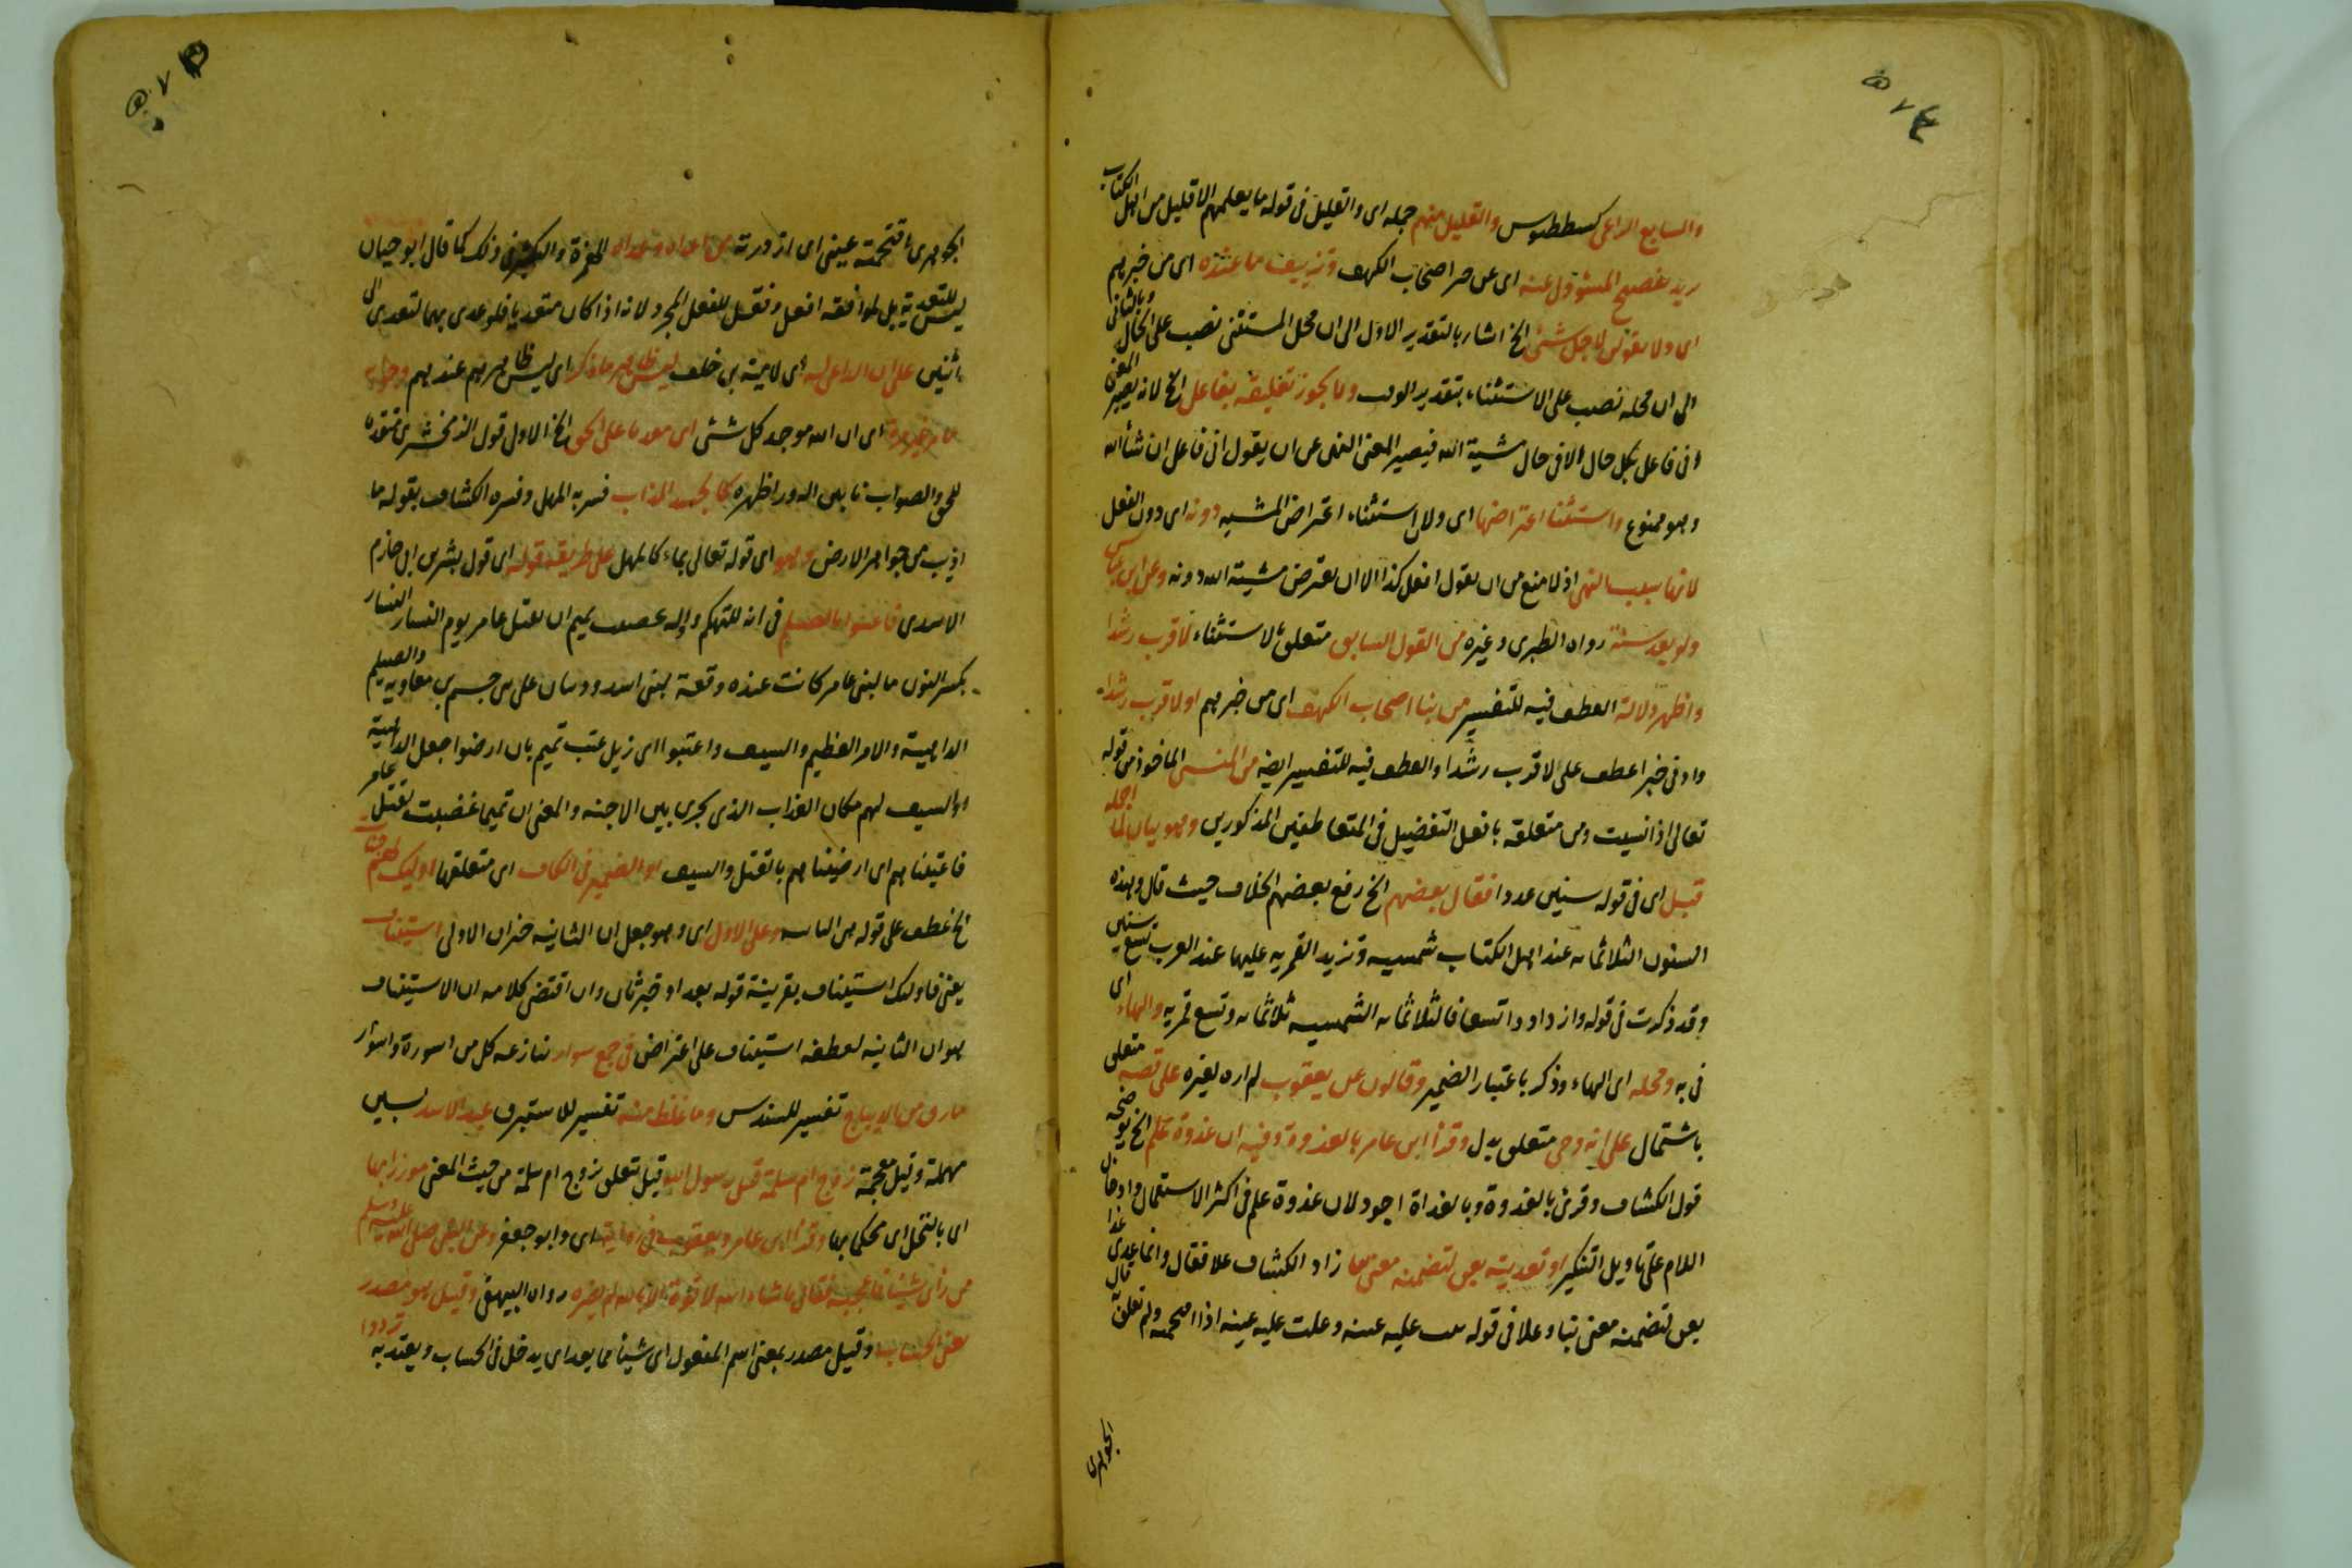 والسابع الراعى كسططيوس والقليل منهم جمله اى والقليل فى قوله ما يعلمهم الا قليل من اهل الكتاب
اى عن امر اصحاب الكهف وتزييف ما عنده اى من خبرهم
اى ولا تقولن لاجل شئ الخ اشار بالتقدير الاول الى ان محل المستثنى نصب على الحال وبالثانى
الى ان محله نصب على الاستثناء بتقدير الوقت ولا يجوز تعليقه بفاعل الخ لانه يصير المعنى
انى فاعل بكل حال الا فى حال مشية الله فيصير المعنى النهى عن ان يقول انى فاعل ان شأ الله
وهو ممنوع واستثنا اعتراضها اى ولا استثناء اعتراض المشيه دونه اى دون الفعل
لانها يناسب النهى اذ لا منع من ان يقول افعل كذا الا ان يعترض مشية الله دونه وعن ابن عباس
ولو بعد سنة رواه الطبرى وغيره من القول السابق متعلق بالاستثناء لاقرب رشدا
واظهر دلالة العطف فيه للتفسير من نبا اصحاب الكهف اى من خبرهم او لاقرب رشدا
وادنى خبرا عطف على لاقرب رشدا والعطف فيه للتفسير ايضه من المنسى الماخوذ من قوله
تعالى اذا نسيت ومن متعلقة بافعل التفضيل فى المتعاطفين المذكورين وهو بيان لما اجمله
قبل اى فى قوله سنين عددا فقال بعضهم الخ رفع بعضهم الخلاف حيث قال وهذه
السنون الثلاثمائه عند اهل الكتاب شمسيه وتزيد القمريه عليها عند العرب تسع سنين
وقد ذكرت فى قوله وازدادوا تسعا فالثلاثمائه الشمسيه ثلاثمائه وتسع قمريه والهاء اى
فى به ومحله اى الهاء وذكر باعتبار الضمير وقالون عن يعقوب لم اره لغيره على قصه متعلق
باشتمال على انه وحى متعلق بدل وقرأ ابن عامر بالغدوة وفيه ان غدوة علم الخ يوضحه
قول الكشاف وقرئ بالغدوة وبالغداة اجود لان غدوة علم فى اكثر الاستعمال وادخال
اللام على تاويل التنكير او تعديته بعن لتضمنه معنى نبا زاد الكشاف علا فقال وانما عدى عدا
بعن لتضمنه معنى نبا وعلا فى قوله نبت عليه عينه وعلت عليه عينه اذا اقتحمته ولم تعلق به قال
الجوهرى
الجوهرى اقتحمته عينى اى ازدرته من اعداه وعداه الهمزة والتكثير فى ذلك كما قال ابو حيان
ليس للتعدية بل لموافقة افعل وفعل للفعل المجرد ولانه اذا كان متعديا فلو عدى بهما لتعدى الى
اثنين على ان الداعى له اى لامية بن خلف ليس ظاهر ما ذكر اى ليس ظاهرهم عندهم
اى ان الله موجد كل شئ اى متقدما على الحق الخ الاول قول الزمخشرى متقدما
للحق والصواب نابذا له ورا ظهره كالجسد المذاب فسر به المهل وفسره الكشاف بقوله ما
اذيب من جواهر الارض وهو اى قوله تعالى بماء كالمهل على طريقة قوله اى قول بشر بن ابى حازم
الاسدى فاعتبوا بالصيلم فى انه للتهكم واوله غضبت تميم ان تقتل عامر يوم النسار النسار
بكسر النون ما لبنى عامر كانت عنده وقعة لبنى اسد وذبيان على بنى جشم بن معاويه والصيلم
الداهية والامر العظيم والسيف واعتبوا اى ازيل عتب تميم بان ارضوا جعل الداهية
او السيف لهم مكان العتاب الذى يجرى بين الاحبه والمعنى ان تميما غضبت لقتل عامر
فاعتبناهم اى ارضيناهم بالقتل والسيف او الضمير فى الكاف اى متعلقها اولئك لهم جنات
الخ عطف على قوله وعلى الاول اى وهو جعل ان الثانيه خبر ان الاولى استيناف
يعنى فاولئك استيناف بقرينة قوله بعد او خبر ثان وان اقتضى كلامه ان الاستيناف
هو ان الثانيه لعطفه استيناف على اعتراض فى جمع سوار تنازعه كل من اسورة واسوار
ما رق من الديباج تفسير للسندس وما غلظ منه تفسير للاستبرق عبد الاسد بسين
مهملة وقيل معجمة زوج ام سلمة قبل رسول الله قيل يتعلق بزوج ام سلمة من حيث المعنى موزرا بها
اى بالنخل اى محكما بها وقرأ ابن عامر ويعقوب فى رواية اى وابو جعفر وعن النبى صلى الله عليه وسلم
من راى شيئا فاعجبه فقال ما شاء الله لا قوة الا بالله لم يضره رواه البيهقى وقيل هو مصدر
بمعنى الحساب وقيل مصدر بمعنى اسم المفعول اى شيئا مما يعد اى يدخل فى الحساب ويعتد به